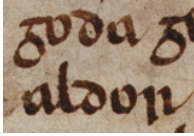 goda g
aldor